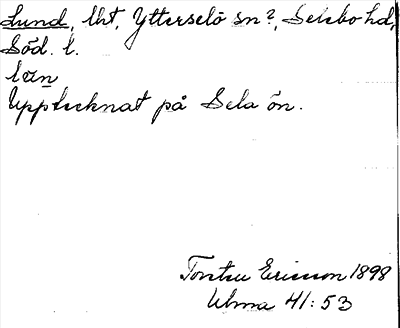 Lund, lht, Ytterselö sn?, Selebo hd,
Söd. l.
län
Upptecknat på Sela ön.
Torsten Ericsson 1898
Ulma 41:53